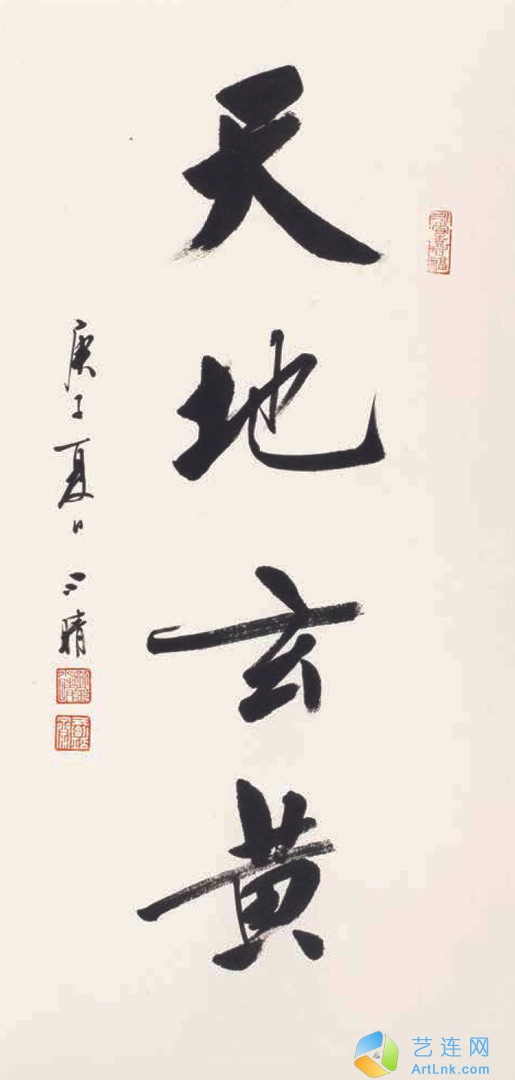 天地玄黄
庚子夏日
晴
艺连网
ArtLnk.com